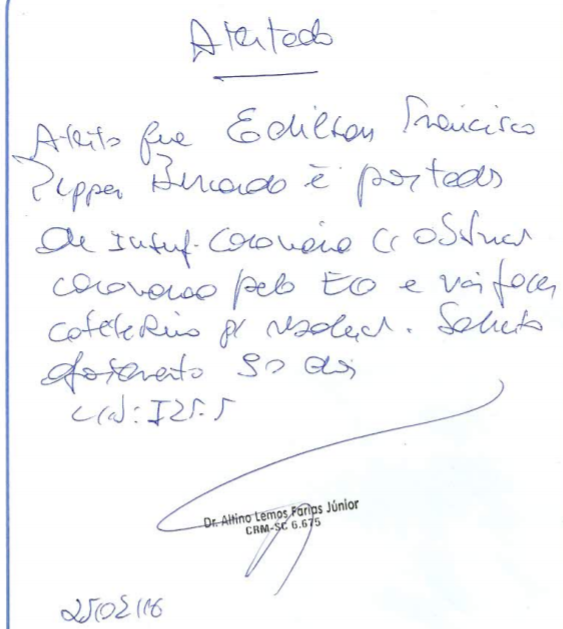 Atestado
Atesto que Edilson Francisco
Pepper é portador
de Insuf. Coronária c/ obstrução
coronária pelo e vai fazer
p/ resolução. Solicito
afastamento 90 dias
CID: I25.5
Dr. Altino Lemos Farias Júnior
CRM-SC 6.675
25/02/16